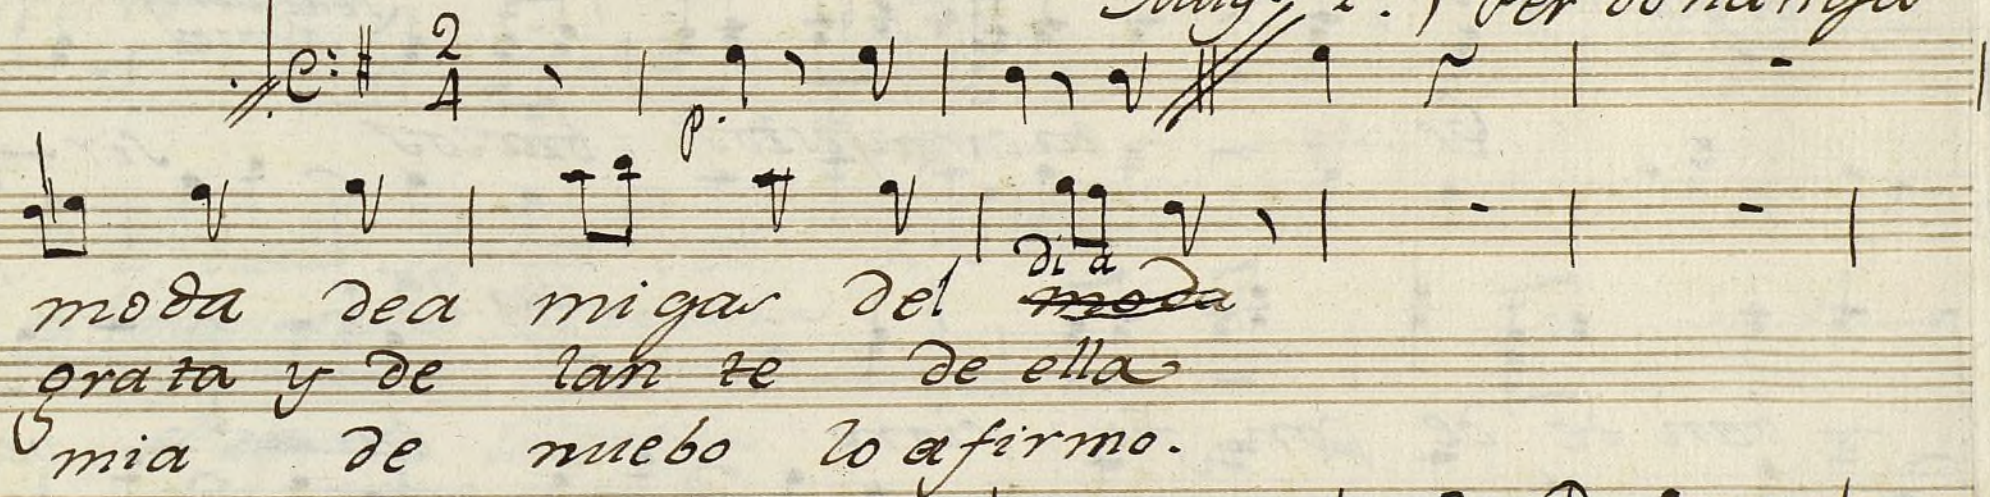 2
4
p.
di a
moda dea migas del moda
grata y de lan te de ella
mia de nuebo lo afirmo.